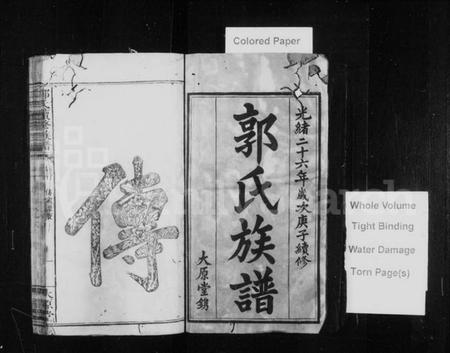 Colored Paper
光緒二十六年歲次庚子續修
郭氏族譜
大原堂鐫
傳
Whole Volume
Tight Binding
Water Damage
Torn Page(s)